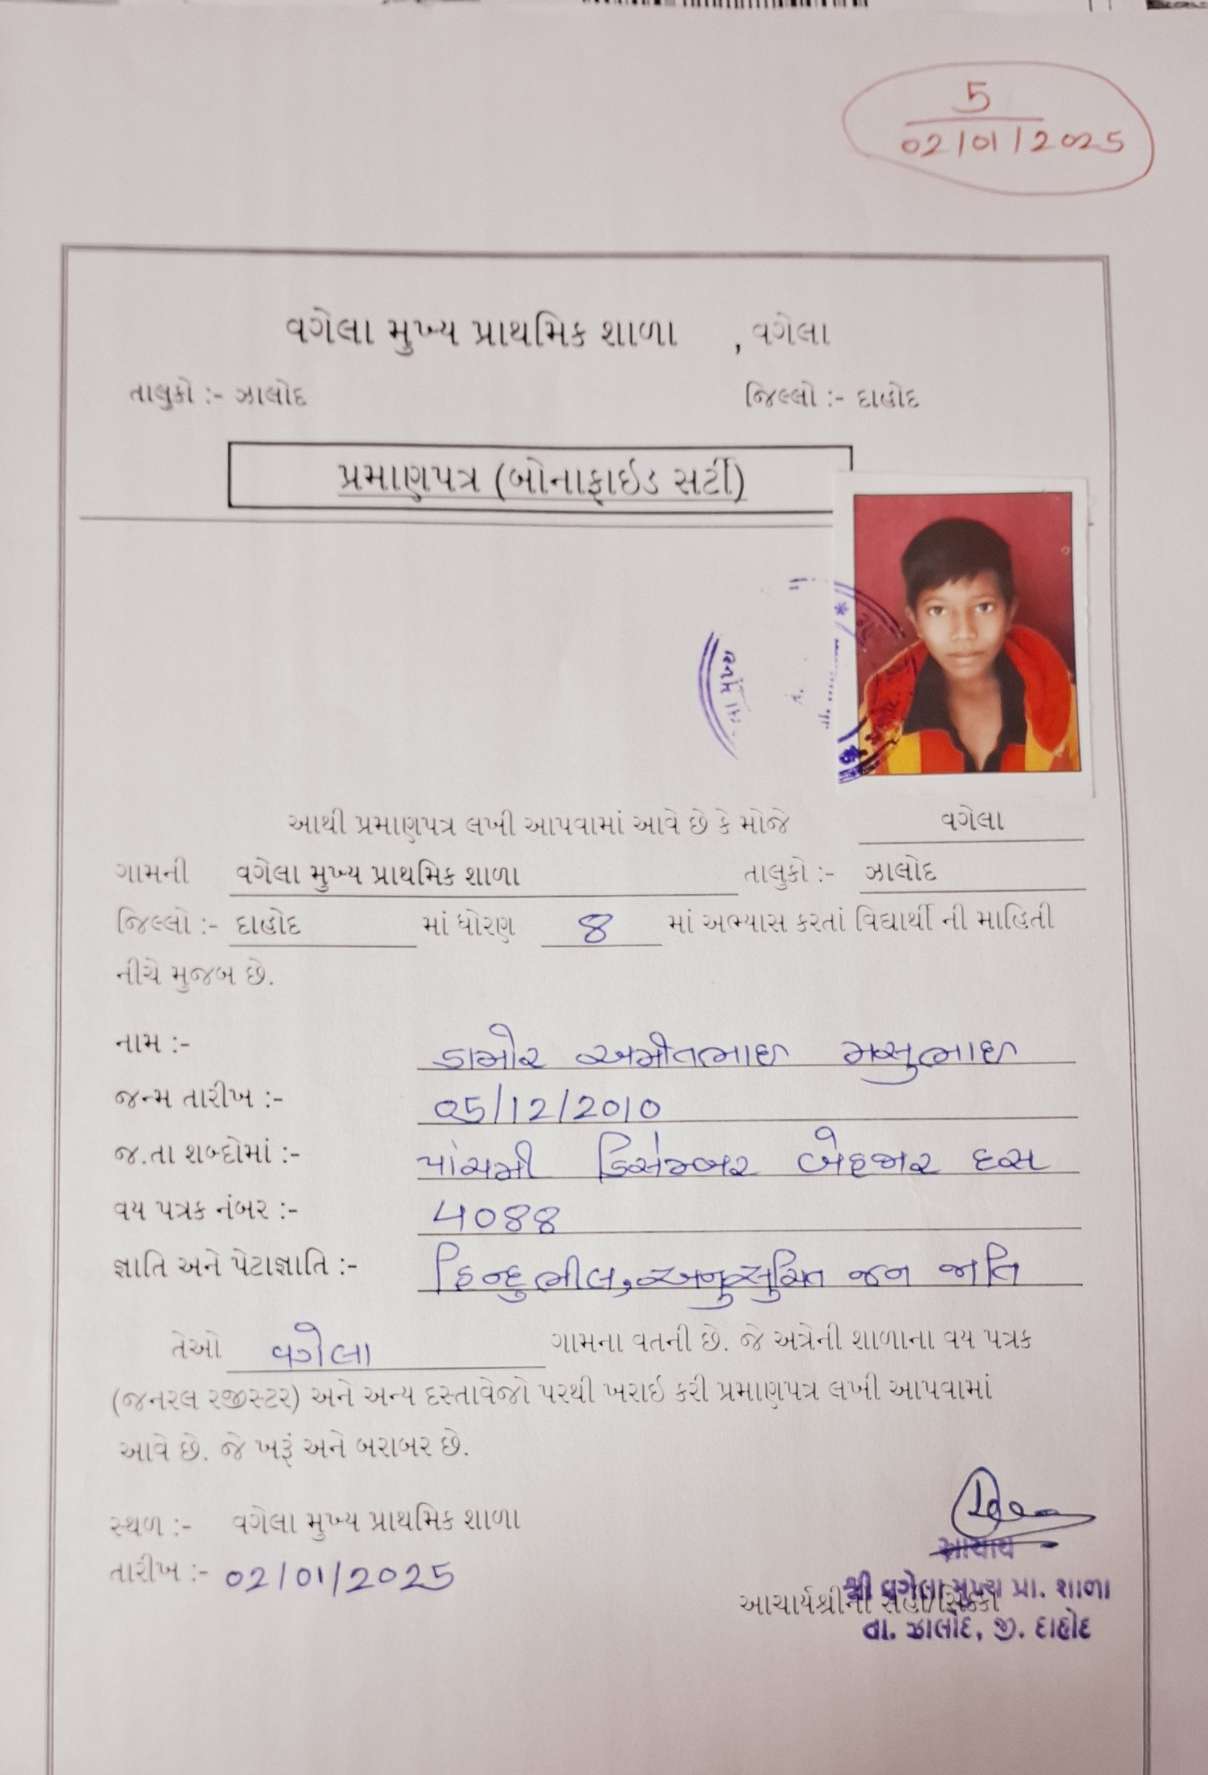 5
02/01/2025
વગેલા મુખ્ય પ્રાથમિક શાળા , વગેલા
તાલુકો :- ઝાલોદ જિલ્લો :- દાહોદ
પ્રમાણપત્ર (બોનાફાઇડ સર્ટી)
આથી પ્રમાણપત્ર લખી આપવામાં આવે છે કે મોજે વગેલા
ગામની વગેલા મુખ્ય પ્રાથમિક શાળા તાલુકો :- ઝાલોદ
જિલ્લો :- દાહોદ માં ધોરણ 8 માં અભ્યાસ કરતાં વિદ્યાર્થી ની માહિતી
નીચે મુજબ છે.
નામ :- ડામોર અમીતભાઇ મસુભાઇ
જન્મ તારીખ :- 05/12/2010
જ.તા શબ્દોમાં :- પાંચમી ડિસેમ્બર બેહજાર દસ
વય પત્રક નંબર :- 4088
જ્ઞાતિ અને પેટાજ્ઞાતિ :- હિન્દુ ભીલ, અનુસુચિત જન જાતિ
તેઓ વગેલા ગામના વતની છે. જે અત્રેની શાળાના વય પત્રક
(જનરલ રજીસ્ટર) અને અન્ય દસ્તાવેજો પરથી ખરાઇ કરી પ્રમાણપત્ર લખી આપવામાં
આવે છે. જે ખરૂં અને બરાબર છે.
સ્થળ :- વગેલા મુખ્ય પ્રાથમિક શાળા
તારીખ :- 02/01/2025
આચાર્ય
શ્રી વગેલા મુખ્ય પ્રા. શાળા
આચાર્યશ્રીની સહી/સિક્કો
તા. ઝાલોદ, જી. દાહોદ